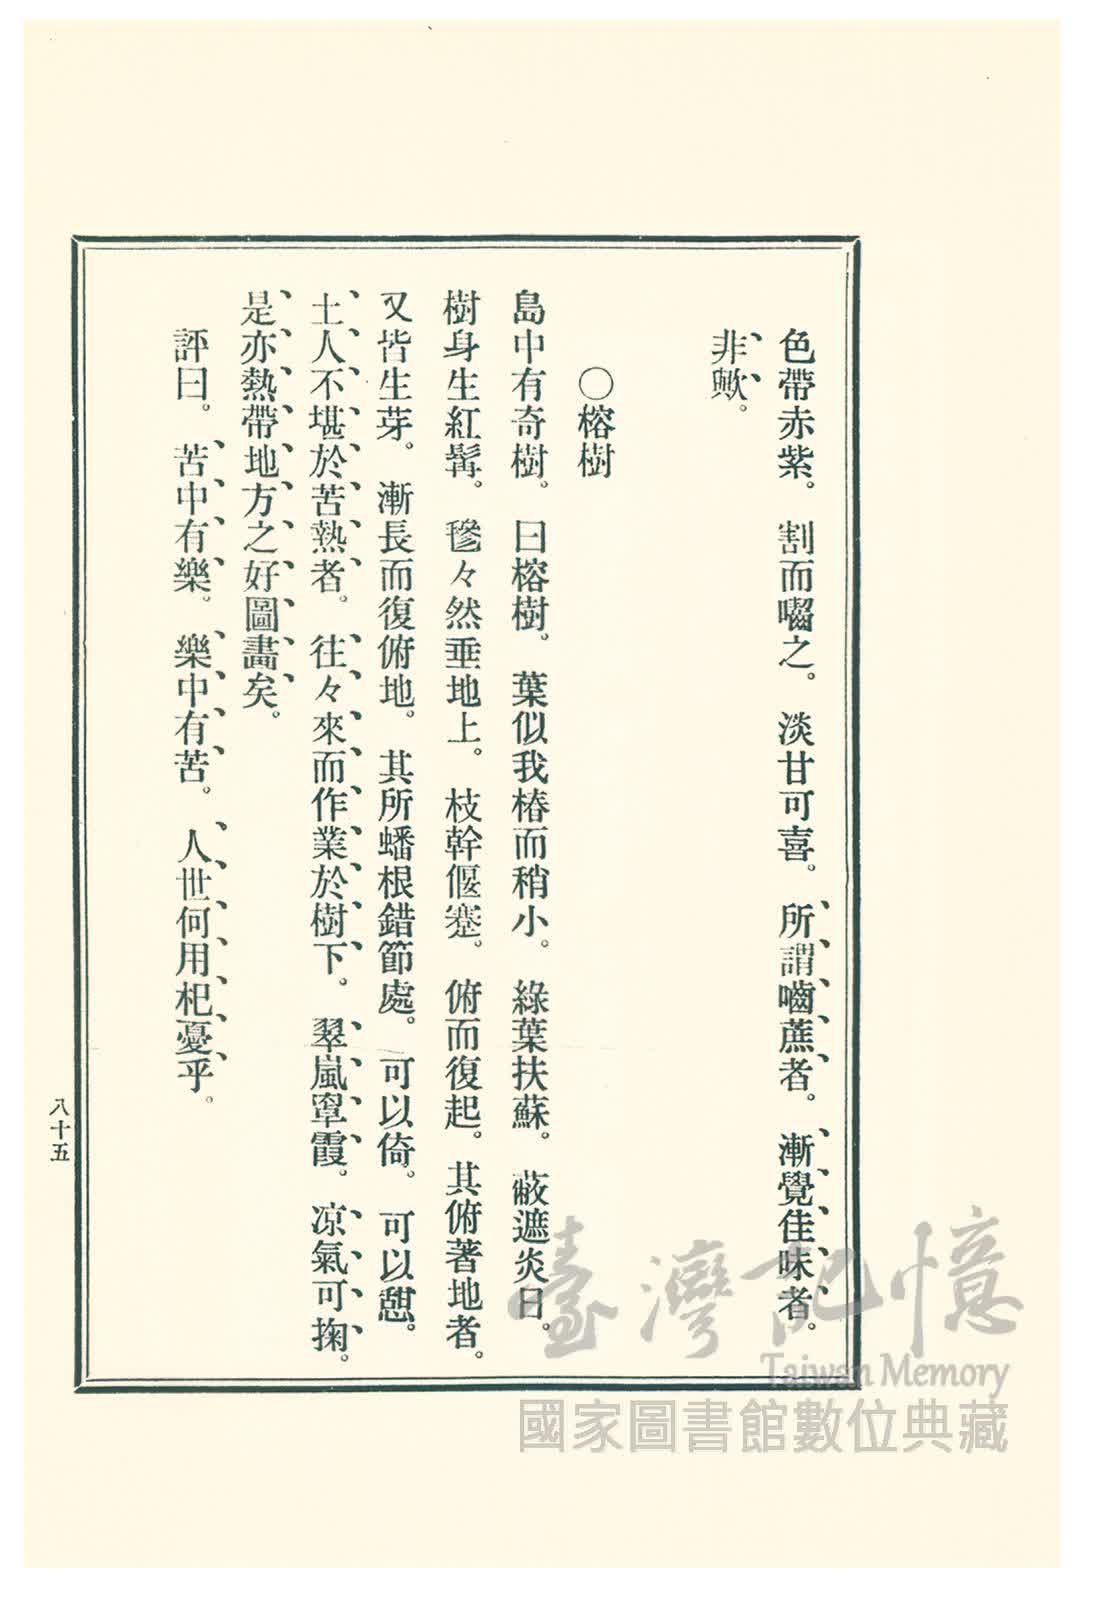 色帶赤紫。割而囓之。淡甘可喜。所謂嚙蔗者。漸覺佳味者。
非歟。
〇榕樹
島中有奇樹。曰榕樹。葉似我椿而稍小。綠葉扶蘇。蔽遮炎日。
樹身生紅髯。毿々然垂地上。枝幹偃蹇。俯而復起。其俯著地者。
又皆生芽。漸長而復俯地。其所蟠根錯節處。可以倚。可以憇。
土人不堪於苦熱者。往々來而作業於樹下。翠嵐窣霞。凉氣可掬。
是亦熱帶地方之好圖畵矣。
評曰。苦中有樂。樂中有苦。人世何用杞憂乎。
八十五
臺灣記憶
Taiwan Memory
國家圖書館數位典藏